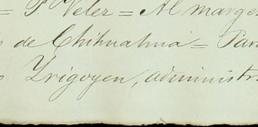 = P Veler = Al margen
de Chihuahua = Par
Yrigoyen, administr